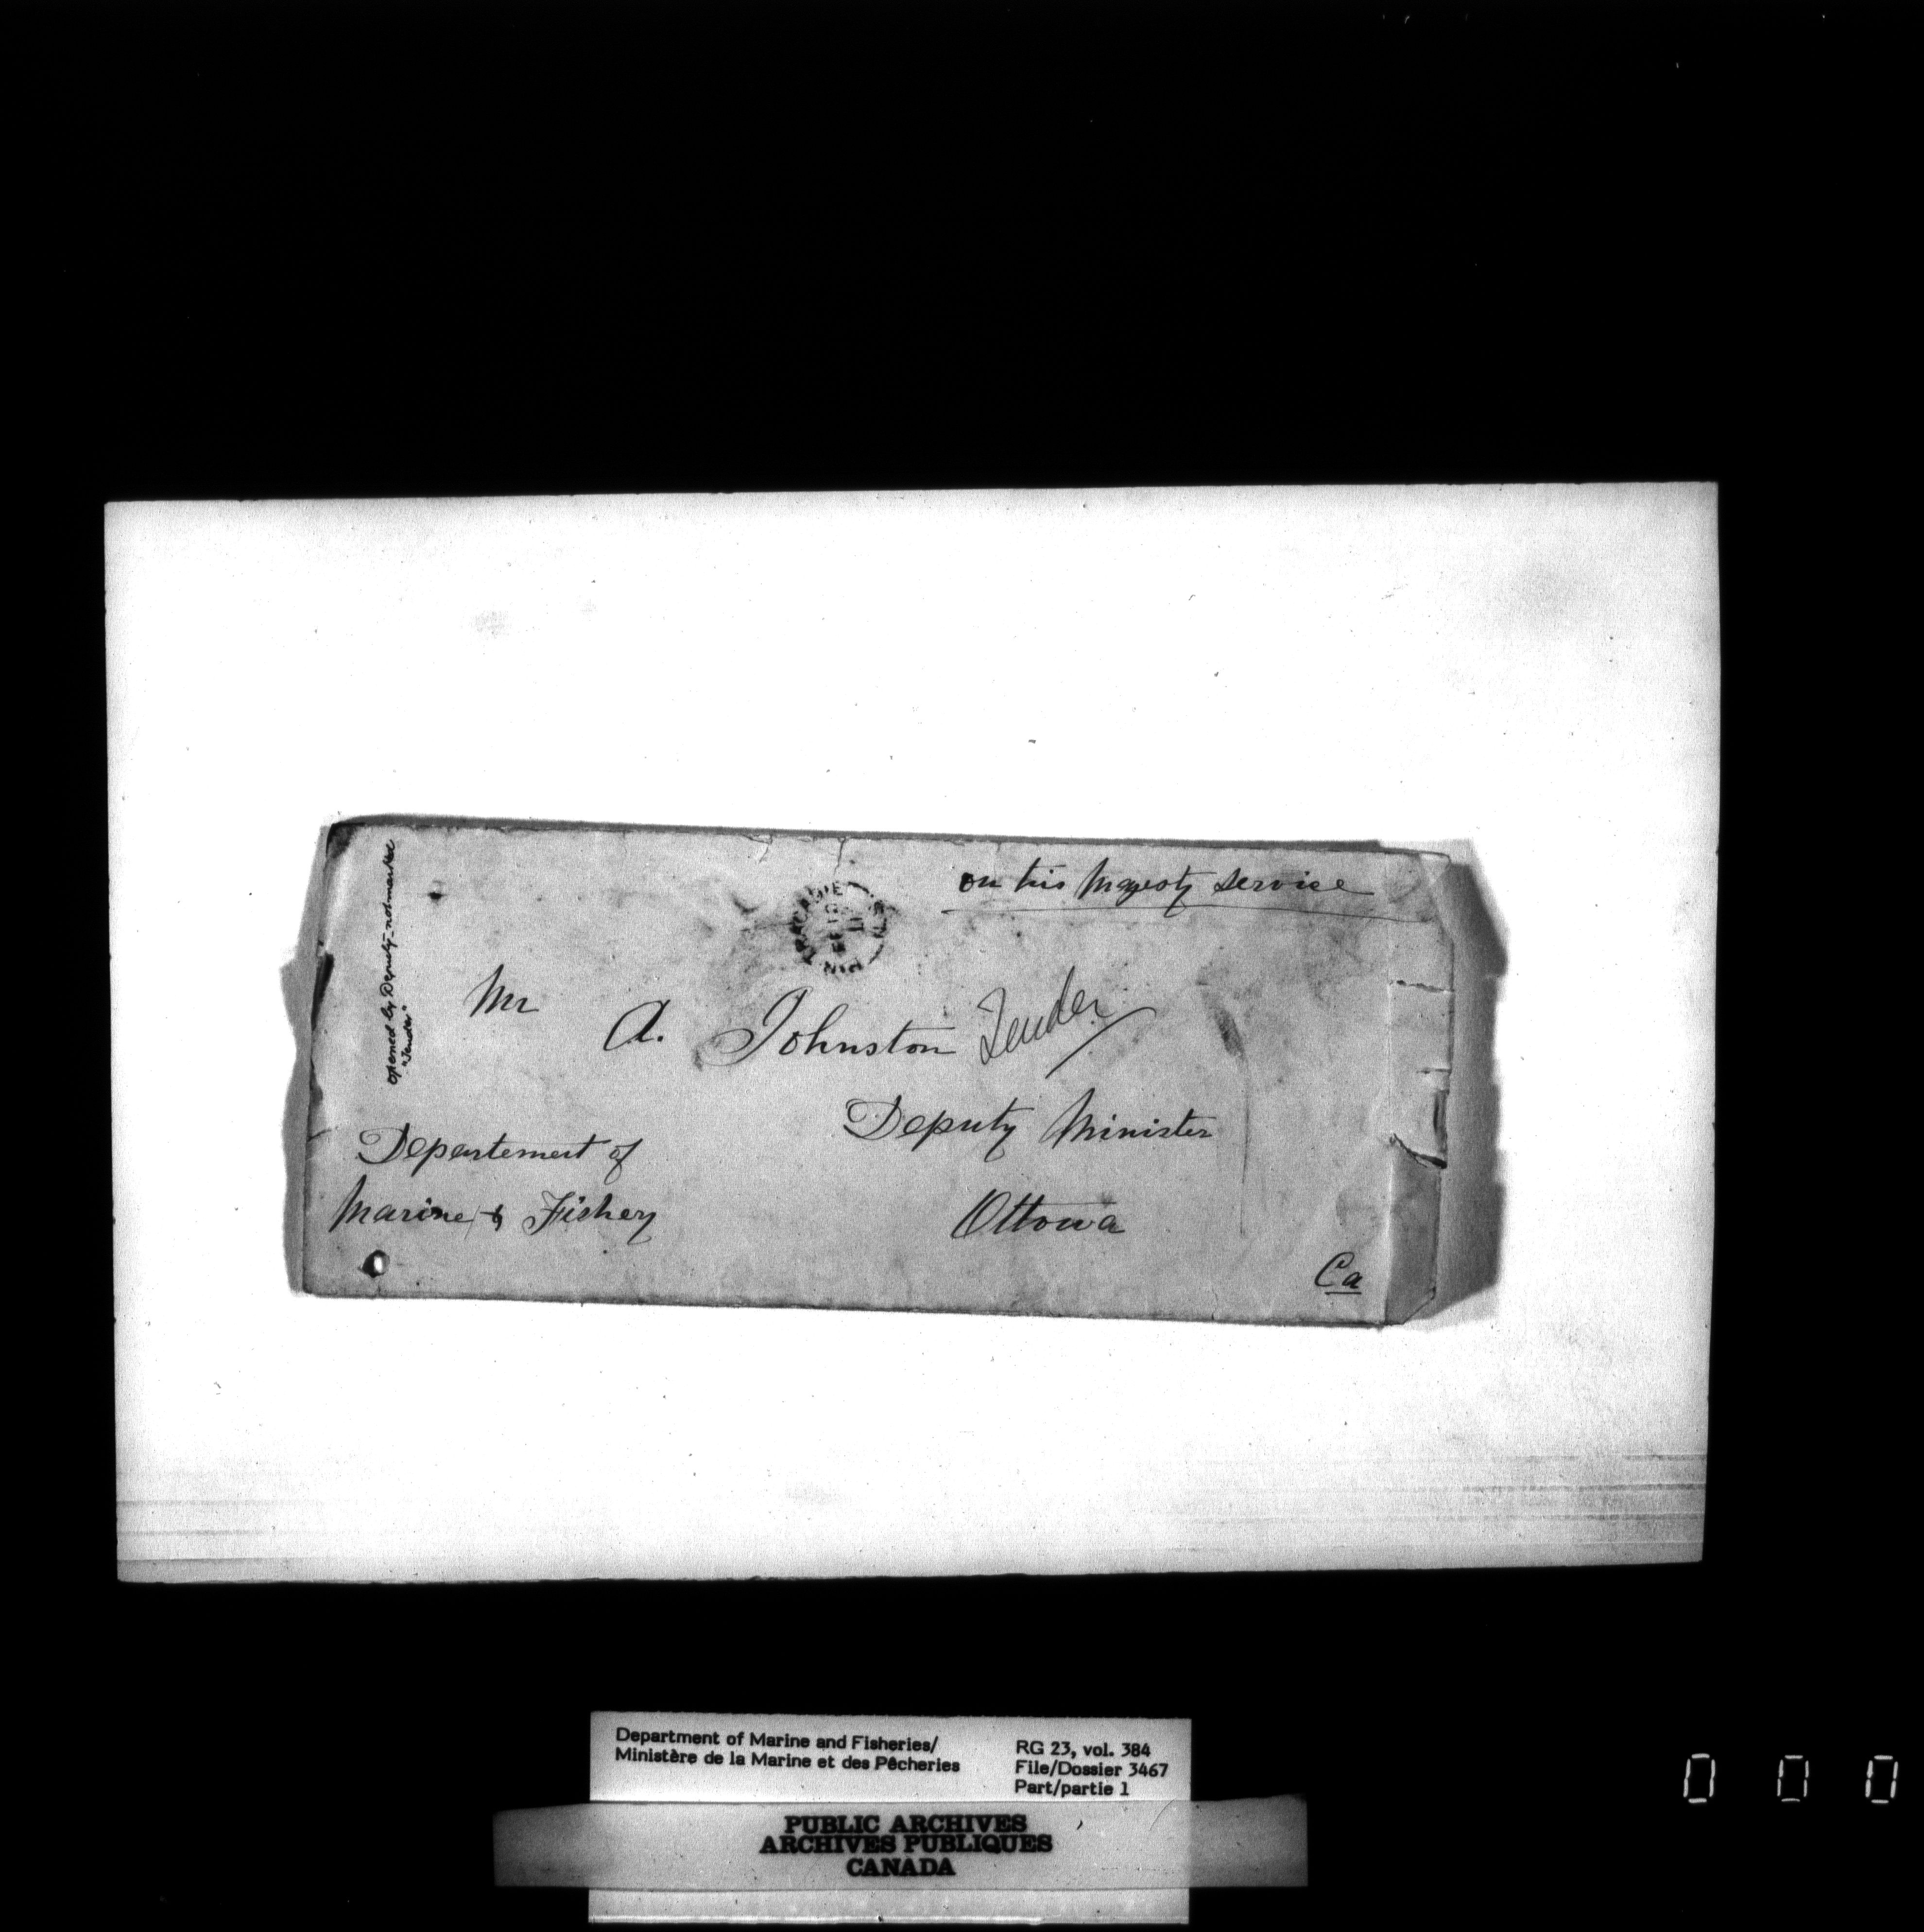 on his Majesty Service
opened by Deputy - not marked
"Tender"
Mr
A. Johnston Tender
Deputy Minister
Departement of
Marine & Fishery
Ottowa
Ca
Department of Marine and Fisheries/
Ministère de la Marine et des Pêcheries
RG 23, vol. 384
File/Dossier 3467
Part/partie 1
PUBLIC ARCHIVES
ARCHIVES PUBLIQUES
CANADA
0 0 0